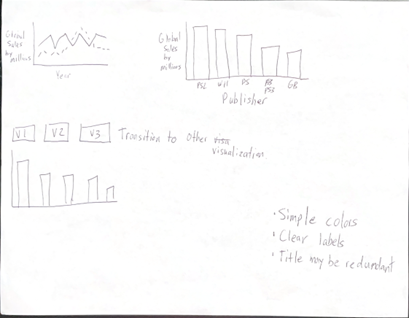 Global
Sales
by
millions
Year
Global
Sales
by
millions
PS2
Wii
DS
PS3
GB
Publisher
V1
V2
V3
Transition to other
visualization
• Simple colors
• Clear labels
• Title may be redundant